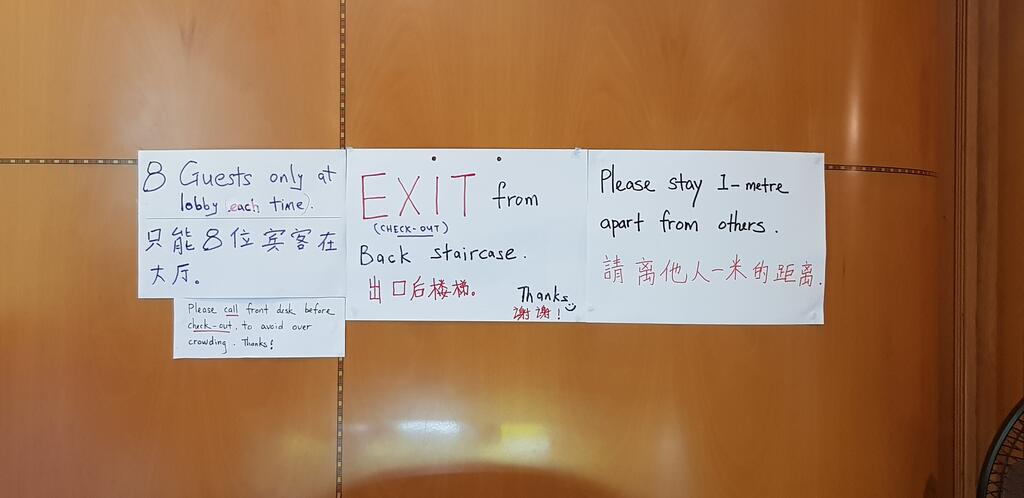 8 Guests only at
lobby (each time).
只能8位宾客在
大厅。
Please call front desk before
check-out, to avoid over
crowding. Thanks!
EXIT from
(CHECK-OUT)
Back staircase.
出口后楼梯。
Thanks
谢谢!
Please stay 1-metre
apart from others.
請离他人一米的距离.